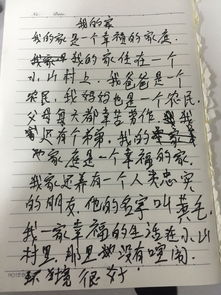 No.
Date.
我的家
我的家是一个幸福的家庭。
我的家住在一个
小山村上，我爸爸是一个
农民，我妈妈也是一个农民，
父母每天都辛苦劳作，我
还有个弟弟，我的
家庭是一个幸福的家，
我家还养有一个人类忠实
的朋友，他的名字叫黄毛，
我一家幸福的生活在小山
村里，那里没有喧闹，
环境很好